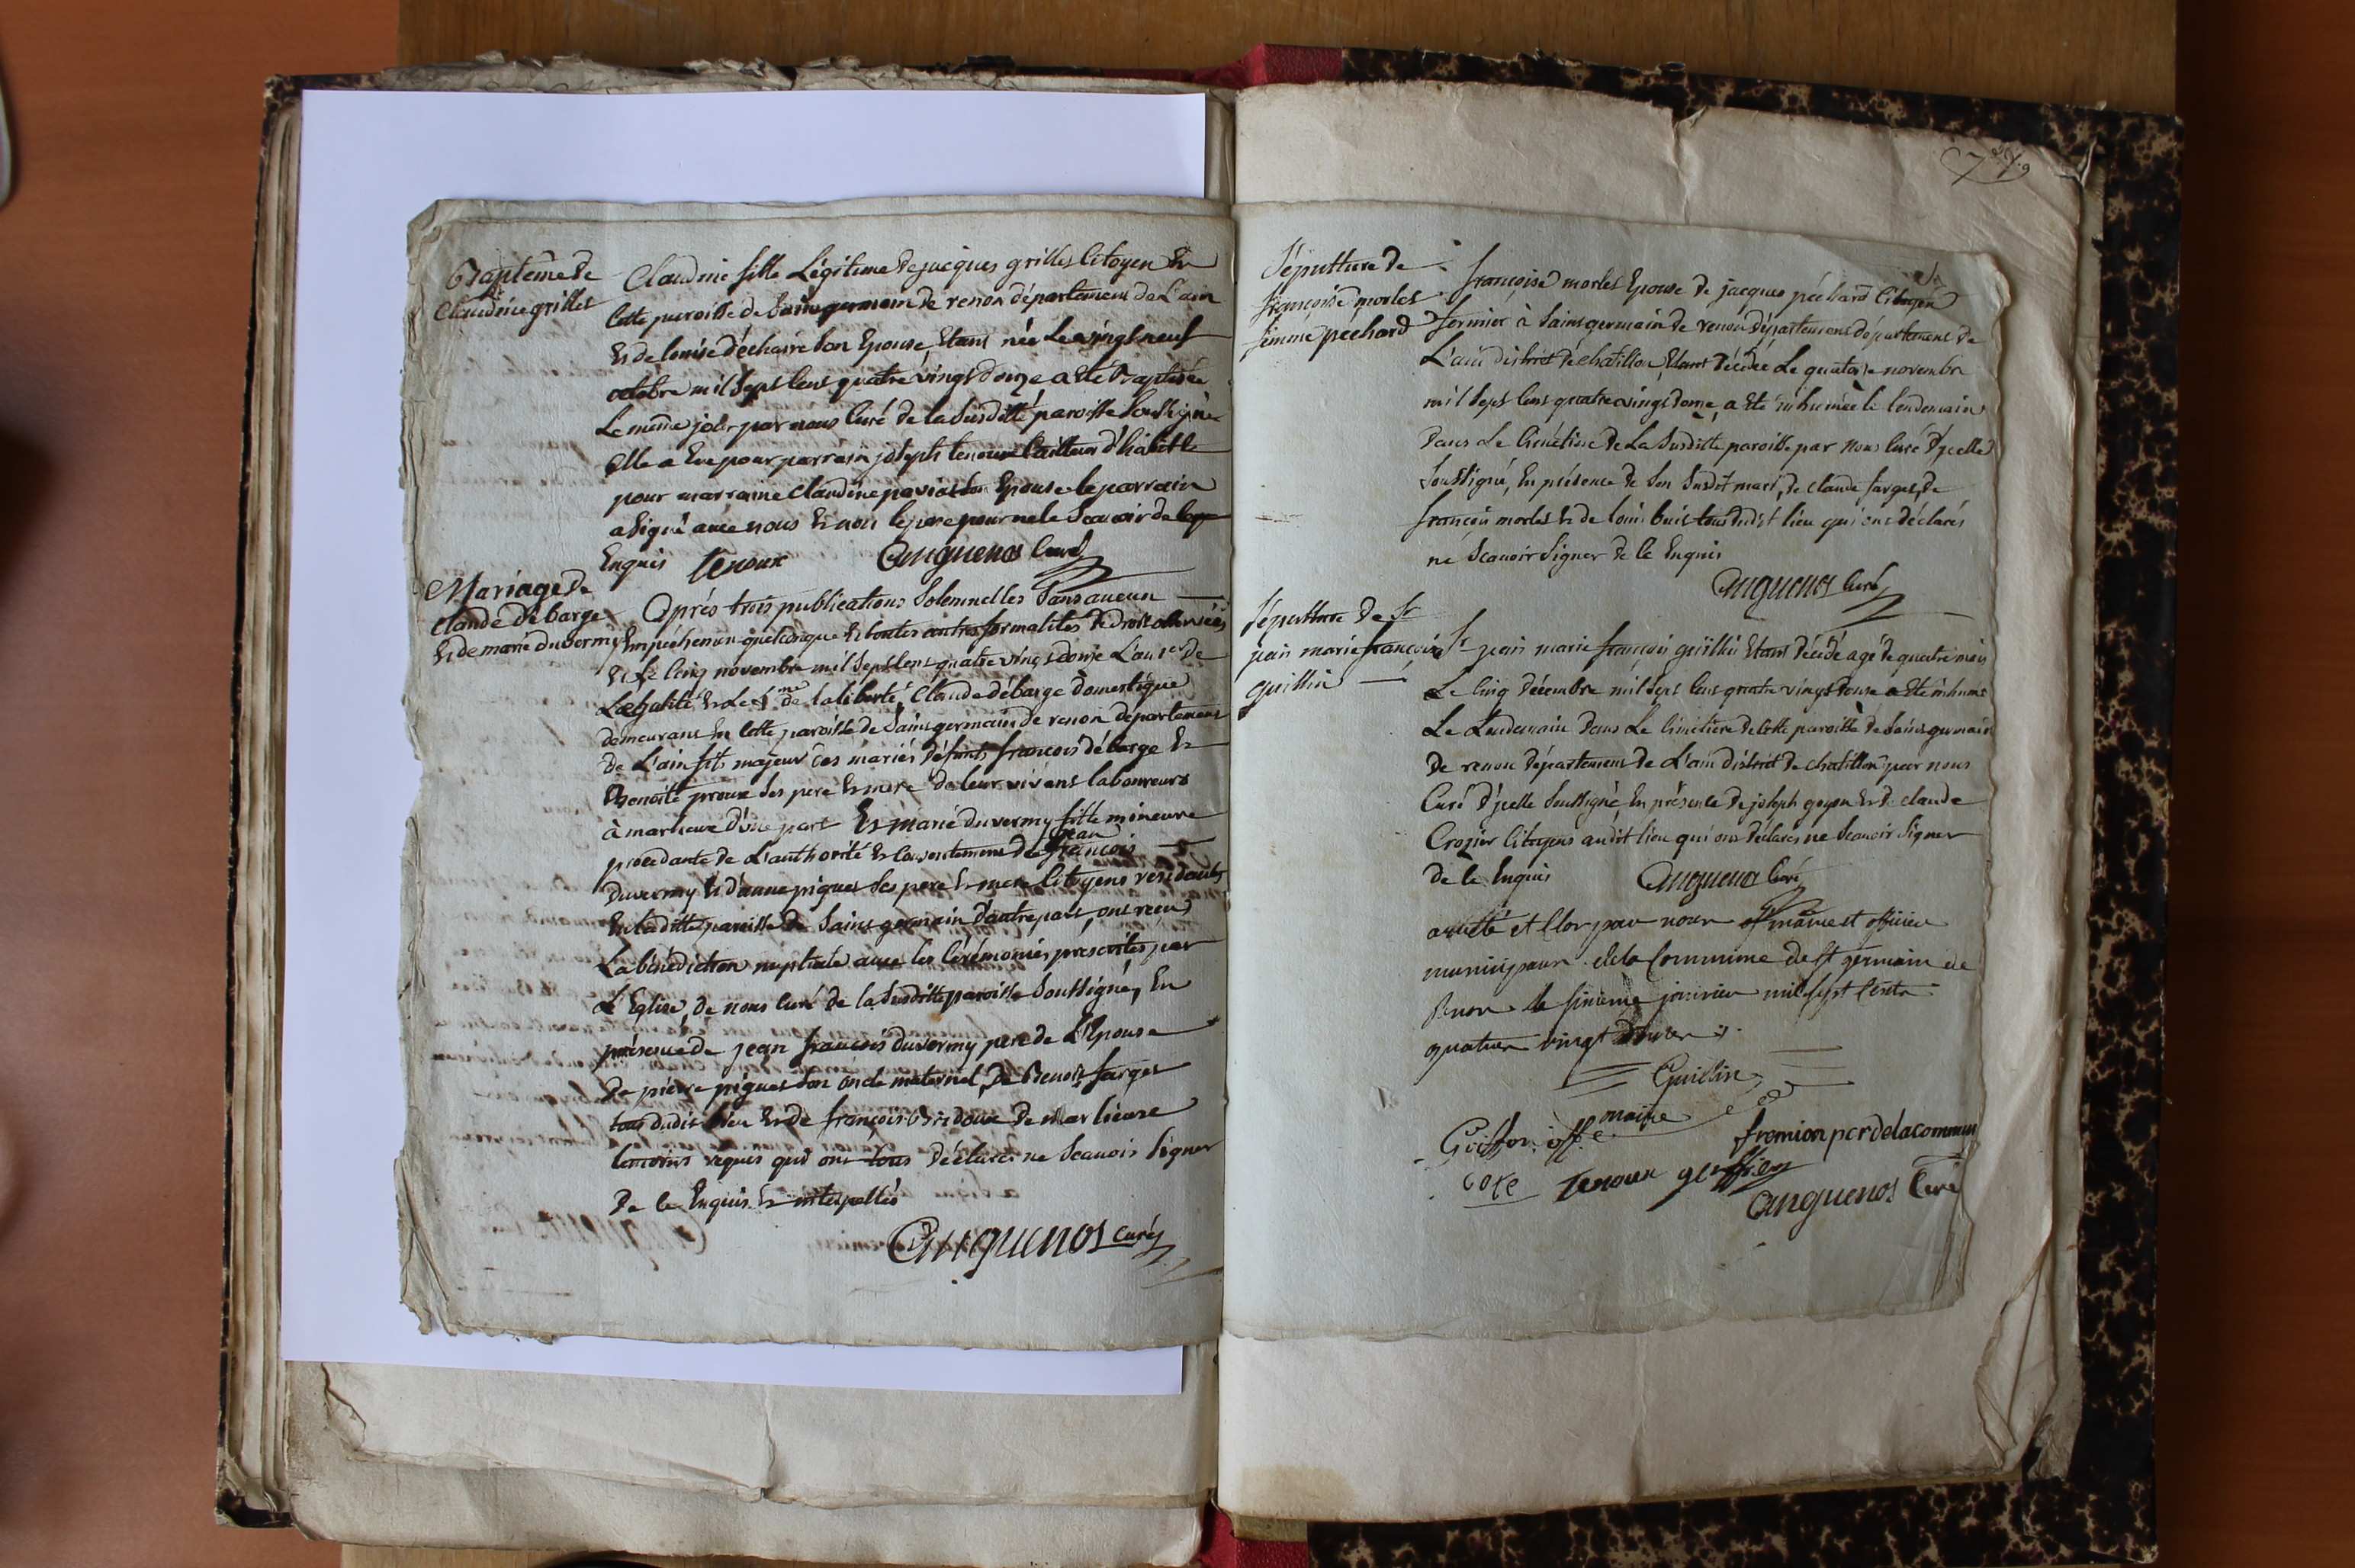 Baptême de
Claudine grillet
Claudine fille Légitime de jacques grillet Citoyen En
Cette paroisse de Saint germain de renon département de L'ain
Et de louise déchairé son Epouse, Etant née Le vingt neuf
octobre mil Sept Cent quatre vingt douze a Eté Baptisée
Le même jour par nous Curé de la Susditte paroisse Soussigné
Elle a Eu pour parrain joseph tenoux tailleur d'habit Et
pour marraine Claudine Son Epouse le parrain
a Signé avec nous Et non le pere pour ne le Scavoir de Ce
Enquis tenoux anguenos Curé
Mariage de
Claude débarge
Et de marie duvermy
Après trois publications Solemnelles Sans aucun
Empêchement quelconque Et toutes autres formalités de droit observées
Et le Cinq novembre mil Sept Cent quatre vingt douze L'an 1er de
L'égalité Et Le 4me de la liberté, Claude débarge domestique
demeurant En Cette paroisse de Saint germain de renon département
de L'ain fils majeur des mariés défunts francois débarge Et
Benoite proux Ses pere Et mere de leur vivant laboureurs
à marlieux d'une part Et marie duvermy fille mineure
procedante de L'authorité Et Consentement de jean francois
duvermy Et d'anne piquet Ses pere Et mere Citoyens residents
En laditte paroisse de Saint germain d'autre part, ont reçu
La bénédiction nuptiale avec les Cérémonies prescrites par
L'Eglise, de nous Curé de la Susditte paroisse Soussigné, En
présence de jean francois duvermy pere de L'Epouse
de pierre piquet Son oncle maternel, de Benoit farget
tous dudit lieu Et de francois Bridoux de marlieux
temoins requis qui ont tous déclarés ne Scavoir Signer
de Ce Enquis Et interpellés
anguenos curé
Sépulture de
françoise morlet
femme péchard
françoise morlet Epouse de jacques péchard Citoyen
fermier à Saint germain de renon département département de
L'ain district de chatillon, Etant décédée Le quatorze novembre
mil Sept Cent quatre vingt douze, a Eté inhumée le lendemain
dans Le Cimétiere de La Susditte paroisse par nous Curé d'jcelle
Soussigné, En présence de Son Susdit mari, de claude farget, de
françois morlet Et de louis buis tous dudit lieu qui ont déclarés
ne Scavoir Signer de Ce Enquis
anguenos Curé
Sépulture de Sr
jean marie françois
guillin
Sr jean marie françois guillin Etant décédé agé de quatre mois
Le Cinq décembre mil Sept Cent quatre vingt douze a Eté inhumé
Le Lendemain dans Le Cimetiere de Cette paroisse de Saint germain
de renon département de L'ain district de chatillon par nous
Curé d'jcelle Soussigné En présence de joseph goyon Et de claude
Crozier Citoyens audit lieu qui ont déclarés ne Scavoir Signer
de Ce Enquis anguenos Curé
arrêté et Clos par nous maire et officiers
municipaux de la Commune de St germain de
Renon le sixieme janvier mil sept Cents
quatre vingt
Guillin
maire
Guiffon off.
fromion pcr de la commun
tenoux
anguenos Curé